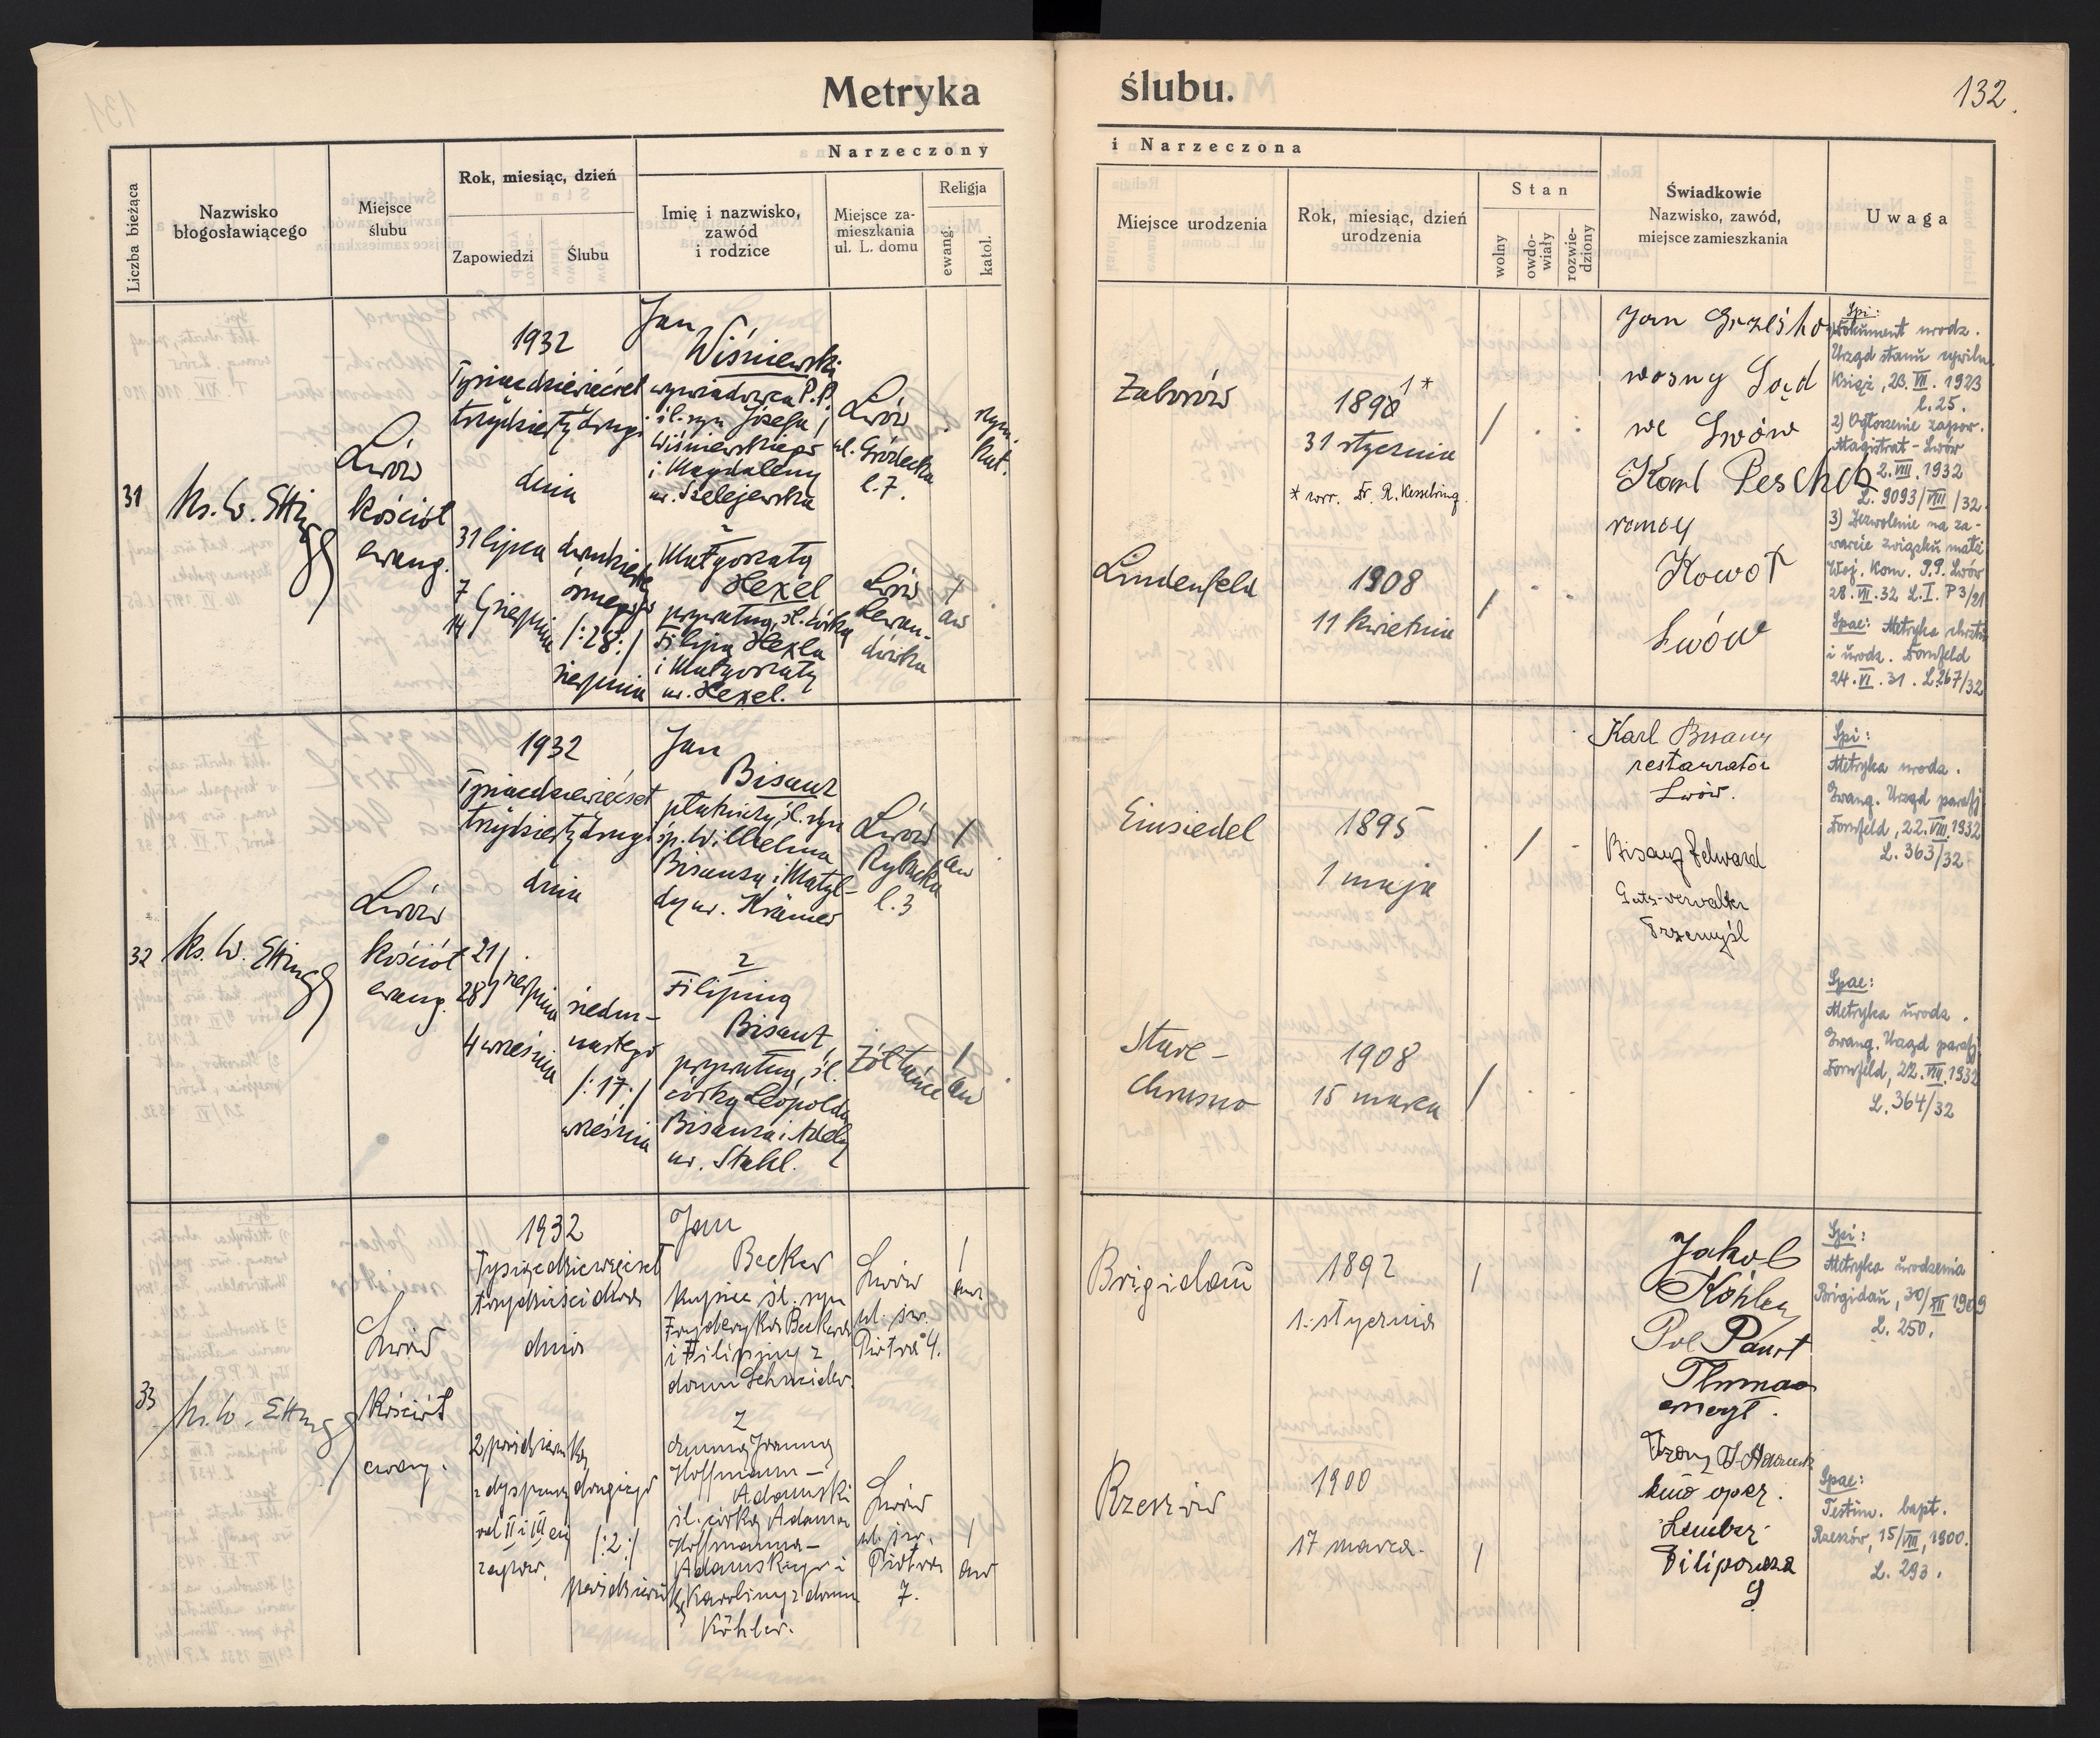 Metryka ślubu.
132.
Liczba bieżąca
Nazwisko
błogosławiącego
Miejsce
ślubu
Rok, miesiąc, dzień
Zapowiedzi
Ślubu
Narzeczony
Imię i nazwisko,
zawód
i rodzice
Miejsce za-
mieszkania
ul. L. domu
Religja
ewang.
katol.
i Narzeczona
Miejsce urodzenia
Rok, miesiąc, dzień
urodzenia
Stan
wolny
owdo-
wiały
rozwie-
dziony
Świadkowie
Nazwisko, zawód,
miejsce zamieszkania
Uwaga
31
ks. W.
Lwów
kościół
ewang.
1932
Tysiącdziewięćset
trzydziestydrugi
dnia
31 lipca
7
14 sierpnia
dwudzieste
ósmego
/:28:/
sierpnia
Jan
Wiśniewski
wywiadowca P.P.
śl. syn Józefa
Wiśniewskiego
i Magdaleny
ur. Szelejewska
z
Małgorzatą
Hexel
prywatną, śl. córką
Filipa Hexla
i Małgorzaty
ur. Hexel.
Lwów
ul. Gródecka
l. 7.
rzym.
kat.
Lwów
Lewan-
dówka
/
aw
Zaborów
1891*
31 stycznia
* corr. Dr. R. Kesselring.
/
Lindenfeld
1908
11 kwietnia
/
Jan
woźny Sąd
we Lwów
Karl Peschel
Lwów
Spi:
1) Dokument urodz.
Urząd stanu cywiln.
Książ, 23. VII. 1923
l. 25.
2) Ogłoszenie zapow.
Magistrat - Lwów
2. VIII. 1932
L. 9093/VIII/32.
3) Zezwolenie na za-
warcie związku małż.
Woj. Kom. P.P. Lwów
28. VII. 32 L. I. P 3/21
Spae: Metryka chrztu
i urodz. Dornfeld
24. VI. 31. L. 267/32
32
ks. W.
Lwów
kościół
ewang.
1932
Tysiącdziewięćset
trzydziestydrugi
dnia
21/
28/ sierpnia
4 września
siedm-
nastego
/:17:/
września
Jan
Bisanz
płatniczy, śl. syn
śp. Wilhelma
Bisanza i Matyl-
dy ur. Krämer
z
Filipiną
Bisanz
prywatną, śl.
córką Leopolda
Bisanza i Adely
ur. Stahl.
Lwów
Rybacka
l. 3
/
aw
Żółtańce
/
aw
Einsiedel
1895
1 maja
/
Stare-
chrusno
1908
15 marca
/
Karl Bisanz
restaurator
Lwów.
Bisanz Edward
Guts-verwalter
Przemyśl
Spi:
Metryka urodz.
Ewang. Urząd parafj.
Dornfeld, 22. VIII. 1932
L. 363/32
Spae:
Metryka urodz.
Ewang. Urząd parafj.
Dornfeld, 22. VIII. 1932
L. 364/32
33
ks. W.
Lwów
kościół
ewang.
1932
Tysiącdziewięćset
trzydzieści dwa
dnia
2 października
z dyspensą
od II i III ej
zapow.
drugiego
/:2:/
października
Jan
Becker
kupiec śl. syn
Fryderyka Beckera
i Filipiny z
domu Schneider.
z
Anną Joanną
Hoffmann-
Adamski
śl. córką Adama
Hoffmanna-
Adamskiego i
Karoliny z domu
Köhler.
Lwów
ul. św.
Piotra 4.
/
aw
Lwów
ul. św.
Piotra
7.
/
aw
Brigidau
1892
1. stycznia
/
Rzeszów
1900
17 marca.
/
Jakob
Köhler
emeryt.
Spi:
Metryka urodzenia
Brigidau, 30/XII 1909
L. 250.
Spae:
Testim. bapt.
Rzeszów, 15/VIII, 1900.
L. 293.